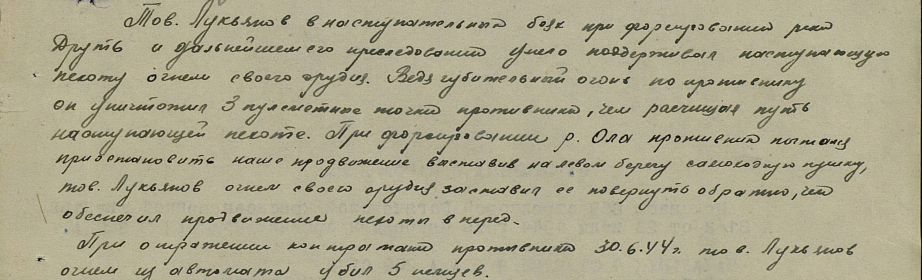 Тов. Лукьянов в наступательных боях при форсировании реки
Друть и дальнейшем его преследовании умело поддерживал наступающую
пехоту огнем своего орудия. Ведя губительный огонь по противнику
он уничтожил 3 пулеметные точки противника, чем расчищая путь
наступающей пехоте. При форсировании р. Ола противник пытался
приостановить наше продвижение выставив на левом берегу самоходную пушку,
тов. Лукьянов огнем своего орудия заставил ее повернуть обратно, что
обеспечил продвижение пехоты вперед.
При отражении контратаки противника 30.6.44 г. тов. Лукьянов
огнем из автомата убил 5 немцев.